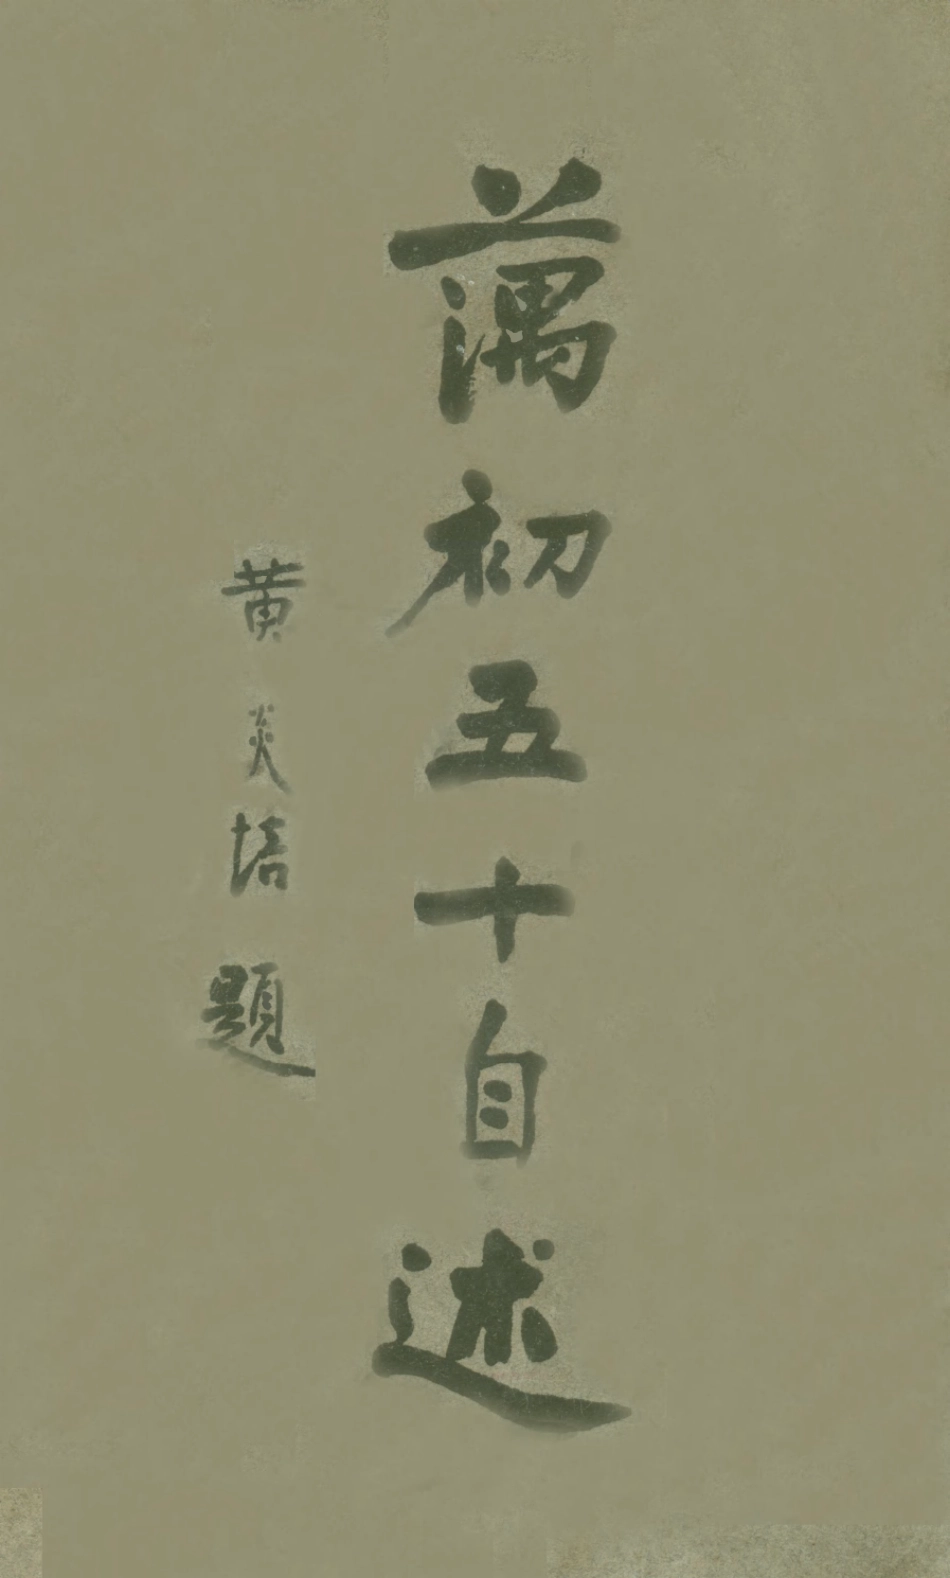 蕅初五十自述
黄炎培題